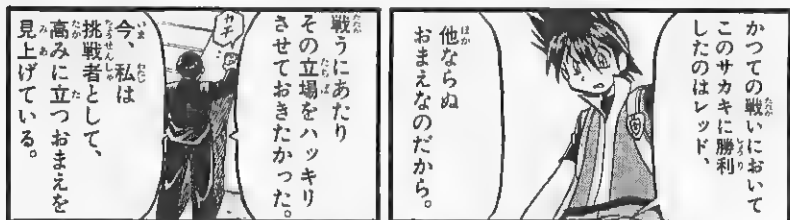 かつての戦いにおいて
このサカキに勝利
したのはレッド、
他ならぬ
おまえなのだから。
戦うにあたり
その立場をハッキリ
させておきたかった。
カチ
今、私は
挑戦者として、
高みに立つおまえを
見上げている。